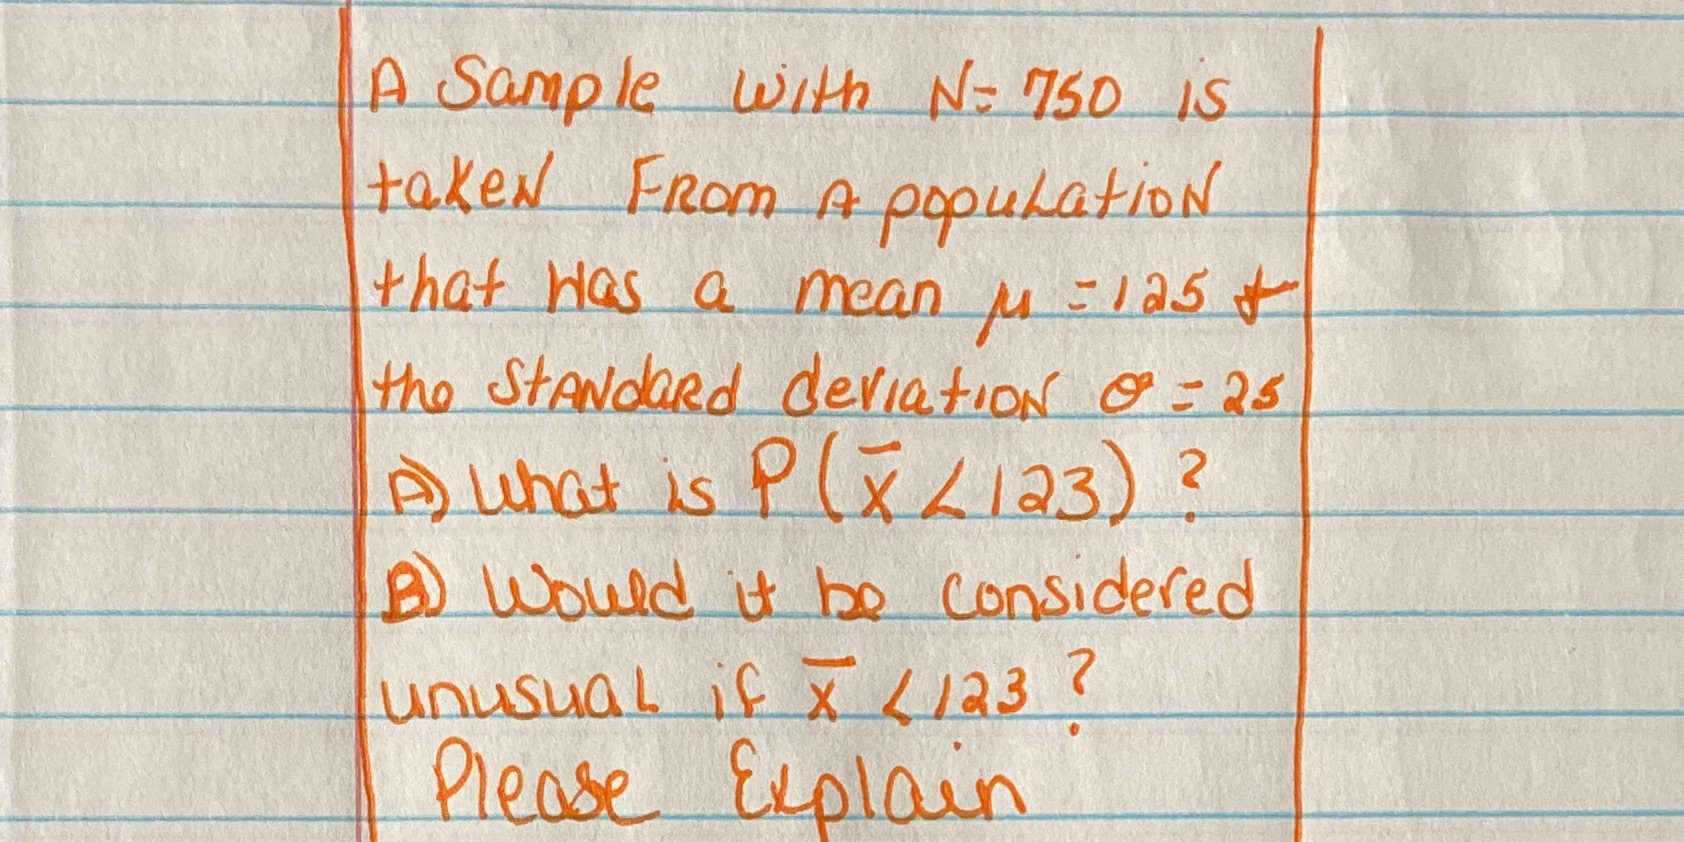 A Sample with N= 750 is
taken From A population
that Has a mean μ = 125 &
the Standard deviation σ = 25
A) What is P(x̄ < 123) ?
B) Would it be considered
unusual if x̄ < 123 ?
Please Explain